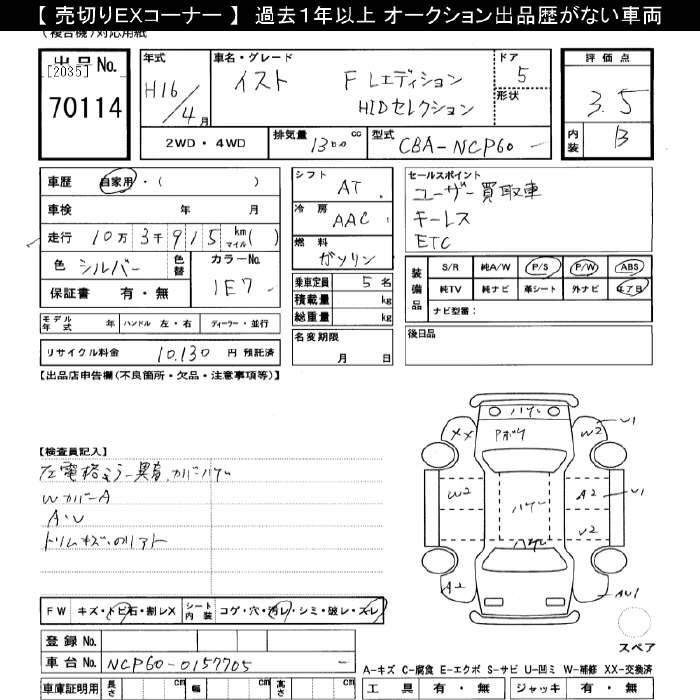 【 売切りEXコーナー 】 過去1年以上 オークション出品歴がない車両
(複合機)対応用紙
出品No.
[2035]
70114
年式
H16/4月
車名・グレード
イスト F Lエディション
HIDセレクション
ドア
5
形状
評価点
3.5
内装
B
2WD・4WD
排気量 1300 cc
型式 CBA-NCP60
車歴 自家用・( )
車検 年 月
走行 10万3千915 km マイル ( )
色 シルバー 色替 カラーNo.
1E7
保証書 有・無
シフト AT
冷房 AAC
燃料 ガソリン
乗車定員 5名
積載量 kg
総重量 kg
名変期限
月 日
セールスポイント
ユーザー買取車
キーレス
ETC
装備品
S/R 純A/W P/S P/W ABS
純TV 純ナビ 革シート 外ナビ エアB
ナビ型番:
後日品
モデル年式 年 ハンドル 左・右 ディーラー・並行
リサイクル料金 10,130 円 預託済
【出品店申告欄(不良箇所・欠品・注意事項等)】
【検査員記入】
左電格ミラー異音、カバーハゲ
WカバーA
A・U
トリムキズ、
ハゲ
XX Pボケ W2 U1
W2 ハゲ A2 U1
U2
ハゲ
A2 AU1
スペア
FW キズ・トビ石・割レX シート内装 コゲ・穴・汚レ・シミ・破レ・スレ
登録No.
車台No. NCP60-0157705
車庫証明用 長さ cm 幅 cm 高さ cm
A-キズ C-腐食 E-エクボ S-サビ U-凹ミ W-補修 XX-交換済
工具 有・無 ジャッキ 有・無